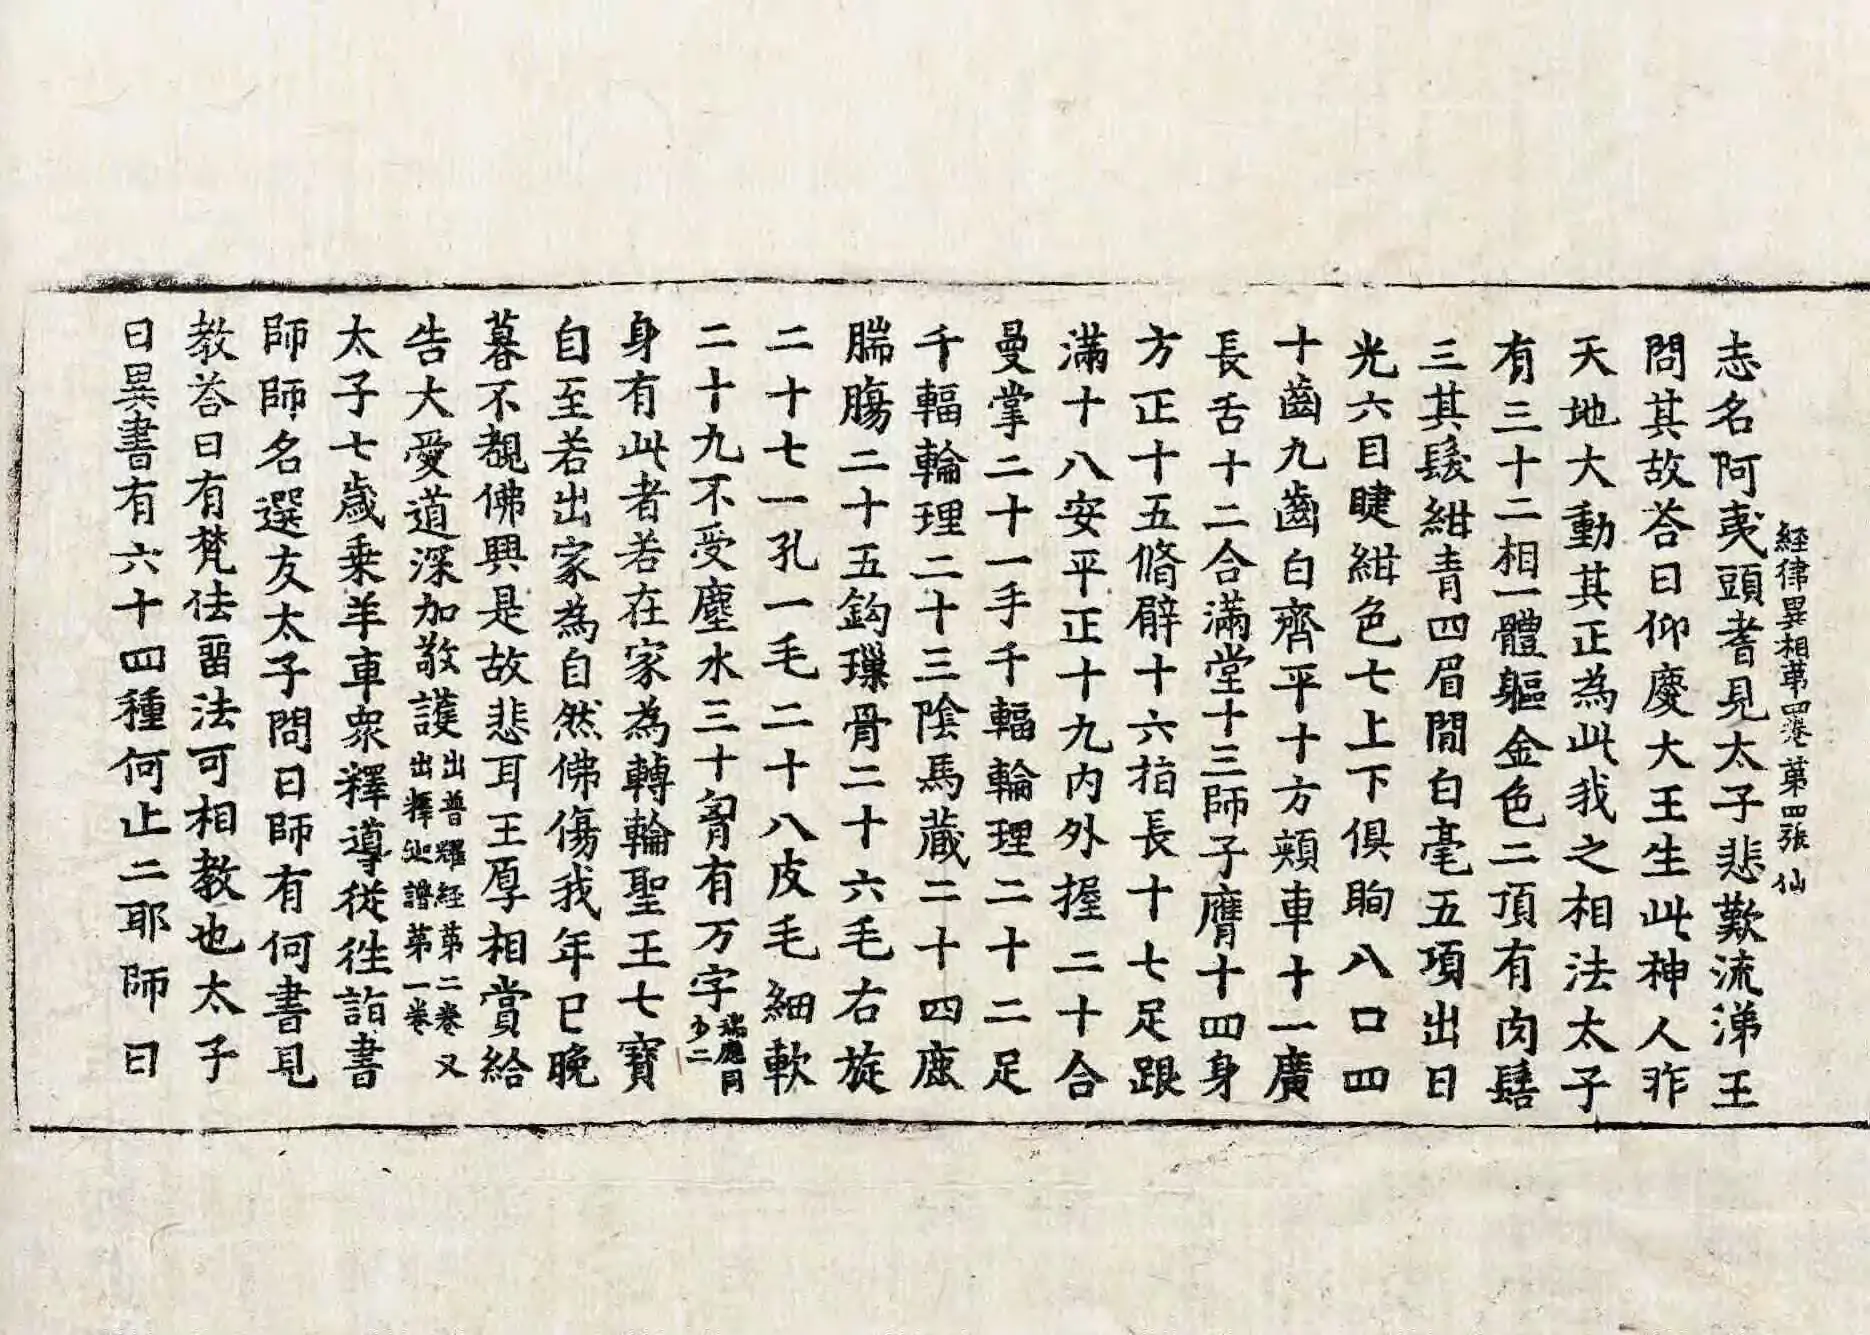 經律異相苐四卷 苐四張 仙
志名阿夷頭耆見太子悲歎流涕王
問其故荅曰仰慶大王生此神人昨
天地大動其正為此我之相法太子
有三十二相一體軀金色二頂有肉髻
三其髮紺青四眉間白毫五項出日
光六目睫紺色七上下俱眴八口四
十齒九齒白齊平十方頰車十一廣
長舌十二合滿堂十三師子膺十四身
方正十五脩臂十六指長十七足跟
滿十八安平正十九內外握二十合
曼掌二十一手千輻輪理二十二足
千輻輪理二十三陰馬藏二十四鹿
腨腸二十五鈎璅骨二十六毛右旋
二十七一孔一毛二十八皮毛細軟
二十九不受塵水三十𦚾有万字瑞應同少二
身有此者若在家為轉輪聖王七寶
自至若出家為自然佛傷我年已晚
暮不覩佛興是故悲耳王厚相賞給
告大愛道深加敬護出普耀經苐二卷又出釋迦譜苐一卷
太子七歲乗羊車衆釋導從徃詣書
師師名選友太子問曰師有何書見
教荅曰有梵佉留法可相教也太子
曰異書有六十四種何止二耶師曰